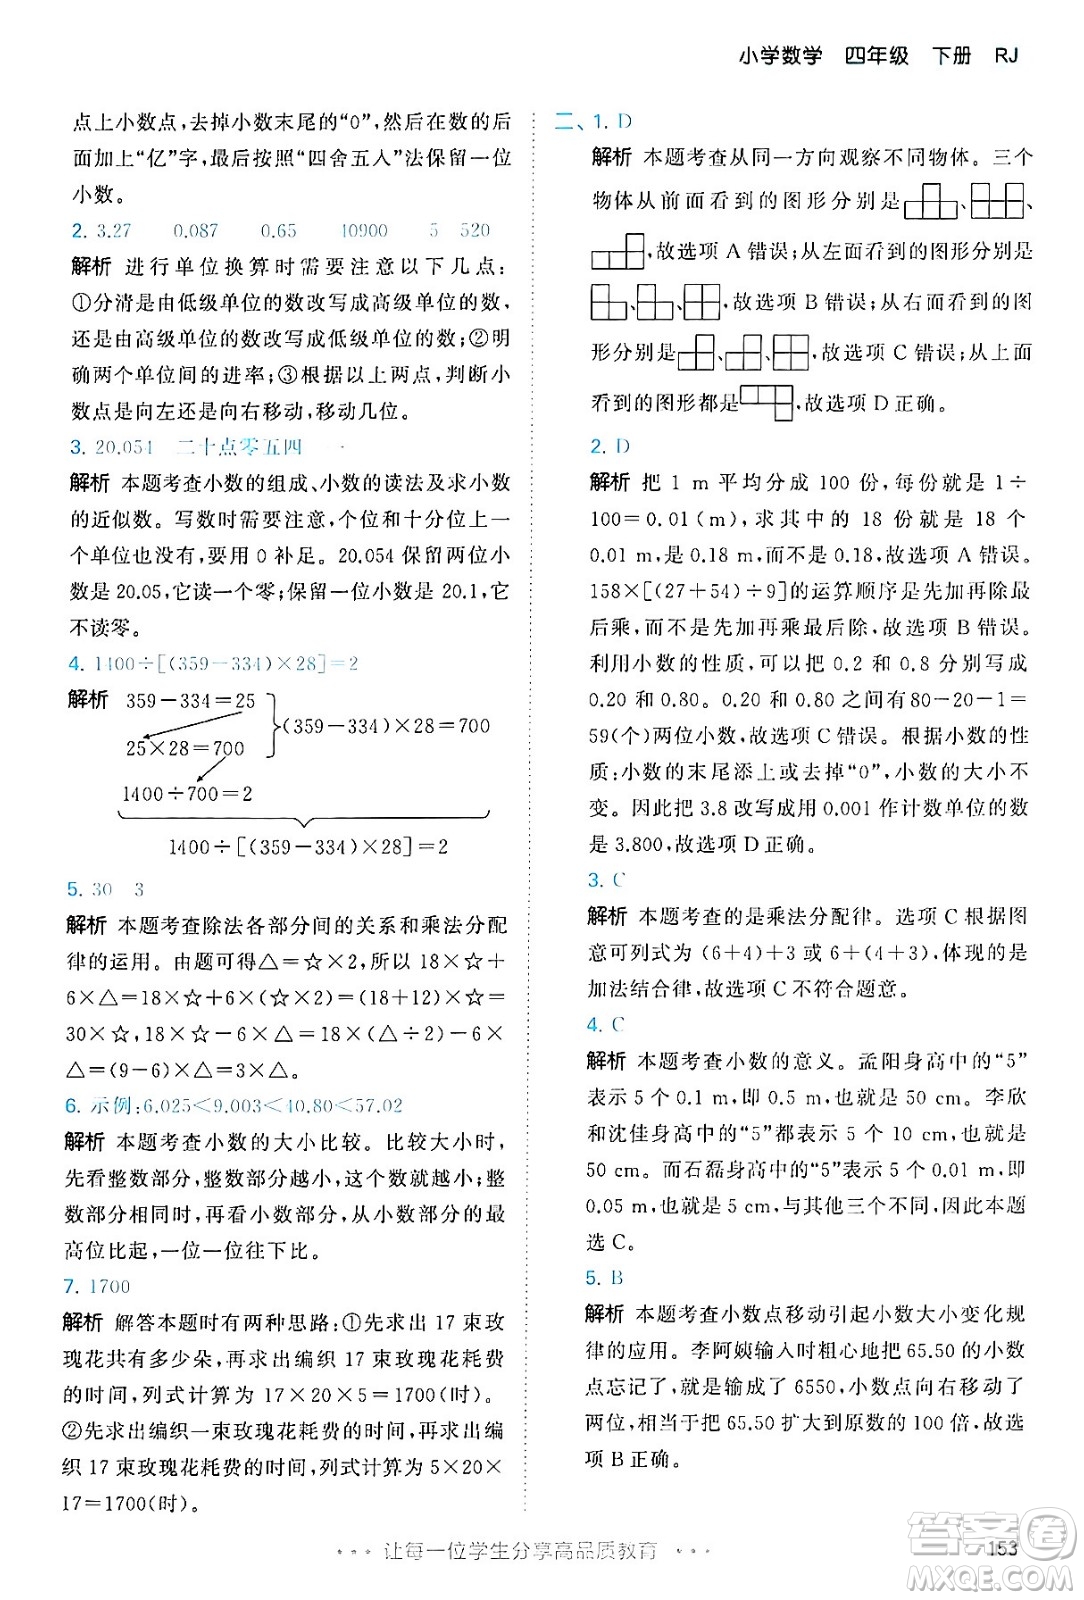 小学数学 四年级 下册 RJ
点上小数点，去掉小数末尾的“0”，最后在数的后
面加上“亿”字，最后按照“四舍五入”法保留一位
小数。
2. 3.27 0.087 0.65 10900 5 520
解析 进行单位换算时需要注意以下几点：
①分清是由低级单位的数改写成高级单位的数，
还是由高级单位的数改写成低级单位的数；②明
确两个单位间的进率；③根据以上两点，判断小
数点是向左还是向右移动，移动几位。
3. 20.054 二十点零五四
解析 本题考查小数的组成、小数的读法及求小数
的近似数。写数时需要注意，个位和十分位上一
个单位也没有，要用 0 补足。20.054 保留两位小
数是 20.05，它读一个零；保留一位小数是 20.1，它
不读零。
4. 1400÷[(359－334)×28]＝2
解析 359－334＝25
25×28＝700
(359－334)×28＝700
1400÷700＝2
1400÷[(359－334)×28]＝2
5. 30 3
解析 本题考查除法各部分间的关系和乘法分配
律的运用。由题可得△＝☆×2，所以 18×☆＋
6×△＝18×☆＋6×(☆×2)＝(18＋12)×☆＝
30×☆，18×☆－6×△＝18×(△÷2)－6×
△＝(9－6)×△＝3×△。
6. 示例：6.025＜9.003＜40.80＜57.02
解析 本题考查小数的大小比较。比较大小时，
先看整数部分，整数部分越小，这个数就越小；整
数部分相同时，再看小数部分，从小数部分的最
高位比起，一位一位往下比。
7. 1700
解析 解答本题时有两种思路：①先求出 17 束玫
瑰花共有多少朵，再求出编织 17 束玫瑰花耗费
的时间，列式计算为 17×20×5＝1700(时)。
②先求出编织一束玫瑰花耗费的时间，再求出编
织 17 束玫瑰花耗费的时间，列式计算为 5×20×
17＝1700(时)。
二、1. D
解析 本题考查从同一方向观察不同物体。三个
物体从前面看到的图形分别是、、
，故选项 A 错误；从左面看到的图形分别是
、、，故选项 B 错误；从右面看到的图
形分别是、、，故选项 C 错误；从上面
看到的图形都是，故选项 D 正确。
2. D
解析 把 1 m 平均分成 100 份，每份就是 1÷
100＝0.01(m)，求其中的 18 份就是 18 个
0.01 m，是 0.18 m，而不是 0.18，故选项 A 错误。
158×[(27＋54)÷9]的运算顺序是先加再除最
后乘，而不是先加再乘最后除，故选项 B 错误。
利用小数的性质，可以把 0.2 和 0.8 分别写成
0.20 和 0.80。0.20 和 0.80 之间有 80－20－1＝
59(个)两位小数，故选项 C 错误。根据小数的性
质：小数的末尾添上或去掉“0”，小数的大小不
变。因此把 3.8 改写成用 0.001 作计数单位的数
是 3.800，故选项 D 正确。
3. C
解析 本题考查的是乘法分配律。选项 C 根据图
意可列式为 (6＋4)＋3 或 6＋(4＋3)，体现的是
加法结合律，故选项 C 不符合题意。
4. C
解析 本题考查小数的意义。孟阳身高中的“5”
表示 5 个 0.1 m，即 0.5 m，也就是 5 dm。李欣
和沈佳身高中的“5”都表示 5 个 10 cm，也就是
50 cm。而石磊身高中的“5”表示 5 个 0.01 m，即
0.05 m，也就是 5 cm。与其他三个不同，因此本题
选 C。
5. B
解析 本题考查小数点移动引起小数大小变化规
律的应用。李阿姨输入时粗心地把 65.50 的小数
点忘记了，就是输成了 6550，小数点向右移动了
两位，相当于把 65.50 扩大到原数的 100 倍，故选
项 B 正确。
让每一位学生分享高品质教育
153
答案圈
MXQE.COM